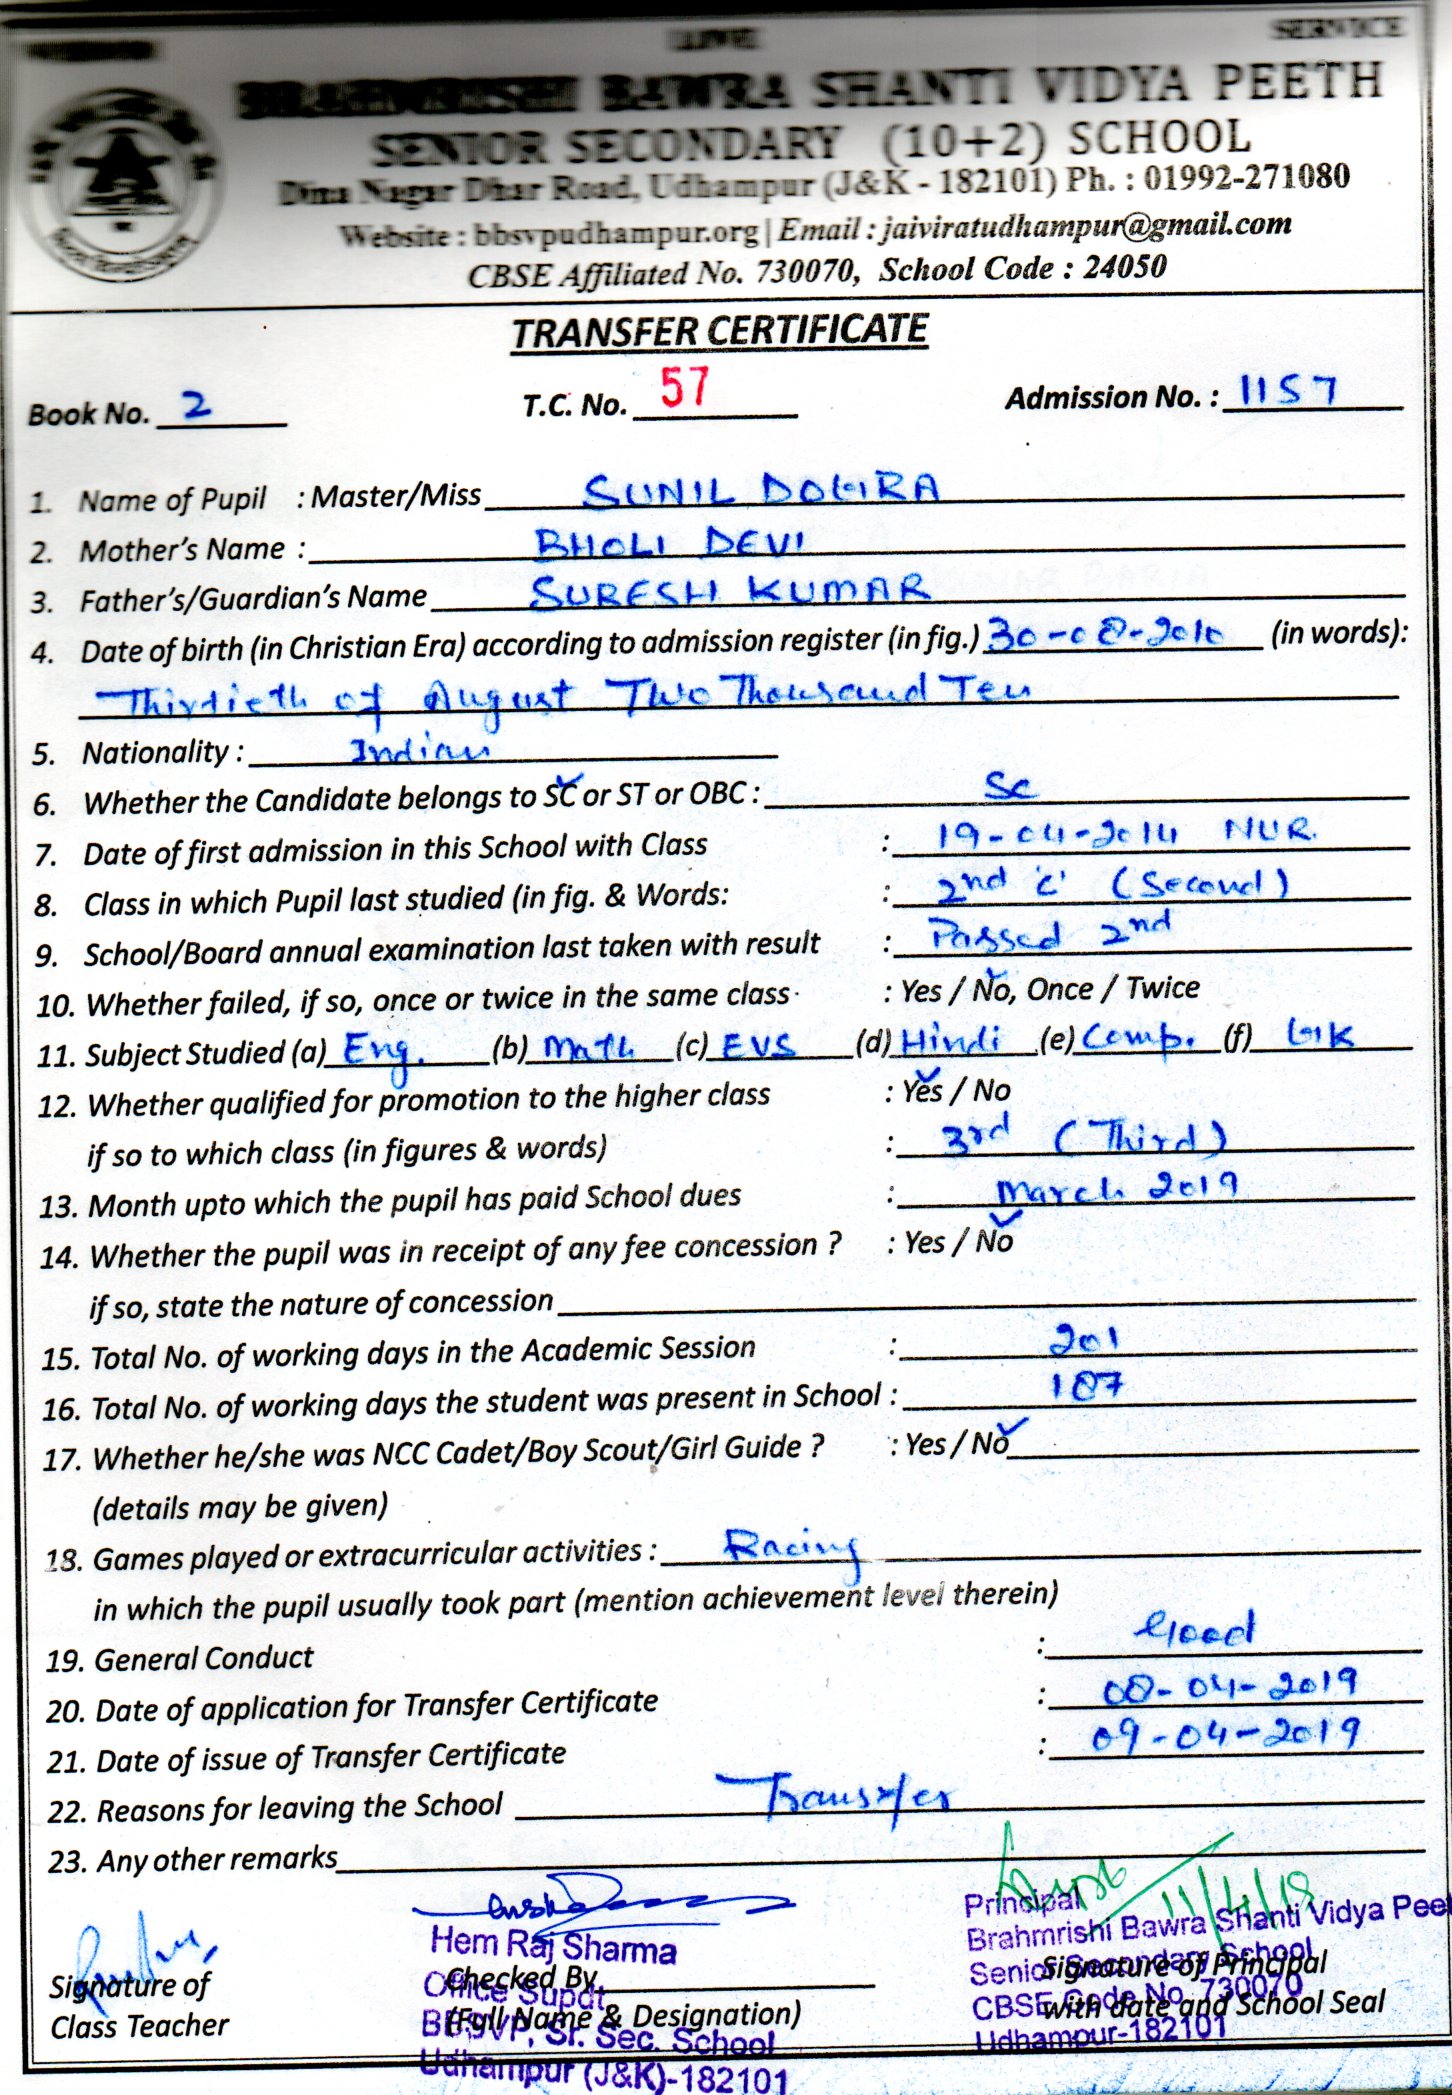 LOVE SERVICE
BRAHMRISHI BAWRA SHANTI VIDYA PEETH
SENIOR SECONDARY (10+2) SCHOOL
Dina Nagar Dhar Road, Udhampur (J&K - 182101) Ph. : 01992-271080
Website : bbsvpudhampur.org | Email : jaiviratudhampur@gmail.com
CBSE Affiliated No. 730070, School Code : 24050
TRANSFER CERTIFICATE
Book No. 2 T.C. No. 57 Admission No. : 1157
1. Name of Pupil : Master/Miss SUNIL DOGRA
2. Mother's Name : BHOLI DEVI
3. Father's/Guardian's Name SURESH KUMAR
4. Date of birth (in Christian Era) according to admission register (in fig.) 30-08-2010 (in words):
Thirtieth of August Two Thousand Ten
5. Nationality : Indian
6. Whether the Candidate belongs to SC or ST or OBC : SC
7. Date of first admission in this School with Class : 19-04-2014 NUR.
8. Class in which Pupil last studied (in fig. & Words: : 2nd 'C' (Second)
9. School/Board annual examination last taken with result : Passed 2nd
10. Whether failed, if so, once or twice in the same class : Yes / No, Once / Twice
11. Subject Studied (a) Eng. (b) Math (c) EVS (d) Hindi (e) Comp. (f) GK
12. Whether qualified for promotion to the higher class : Yes / No
if so to which class (in figures & words) : 3rd (Third)
13. Month upto which the pupil has paid School dues : March 2019
14. Whether the pupil was in receipt of any fee concession ? : Yes / No
if so, state the nature of concession
15. Total No. of working days in the Academic Session : 201
16. Total No. of working days the student was present in School : 187
17. Whether he/she was NCC Cadet/Boy Scout/Girl Guide ? : Yes / No
(details may be given)
18. Games played or extracurricular activities : Racing
in which the pupil usually took part (mention achievement level therein)
19. General Conduct : Good
20. Date of application for Transfer Certificate : 08-04-2019
21. Date of issue of Transfer Certificate : 09-04-2019
22. Reasons for leaving the School Transfer
23. Any other remarks
Signature of
Class Teacher
Hem Raj Sharma
Office Supdt
BBSVP, Sr. Sec. School
Udhampur (J&K)-182101
Checked By
(Full Name & Designation)
Principal
Brahmrishi Bawra Shanti Vidya Peet
Senior Secondary School
CBSE Code No. 730070
Udhampur-182101
Signature of Principal
with date and School Seal